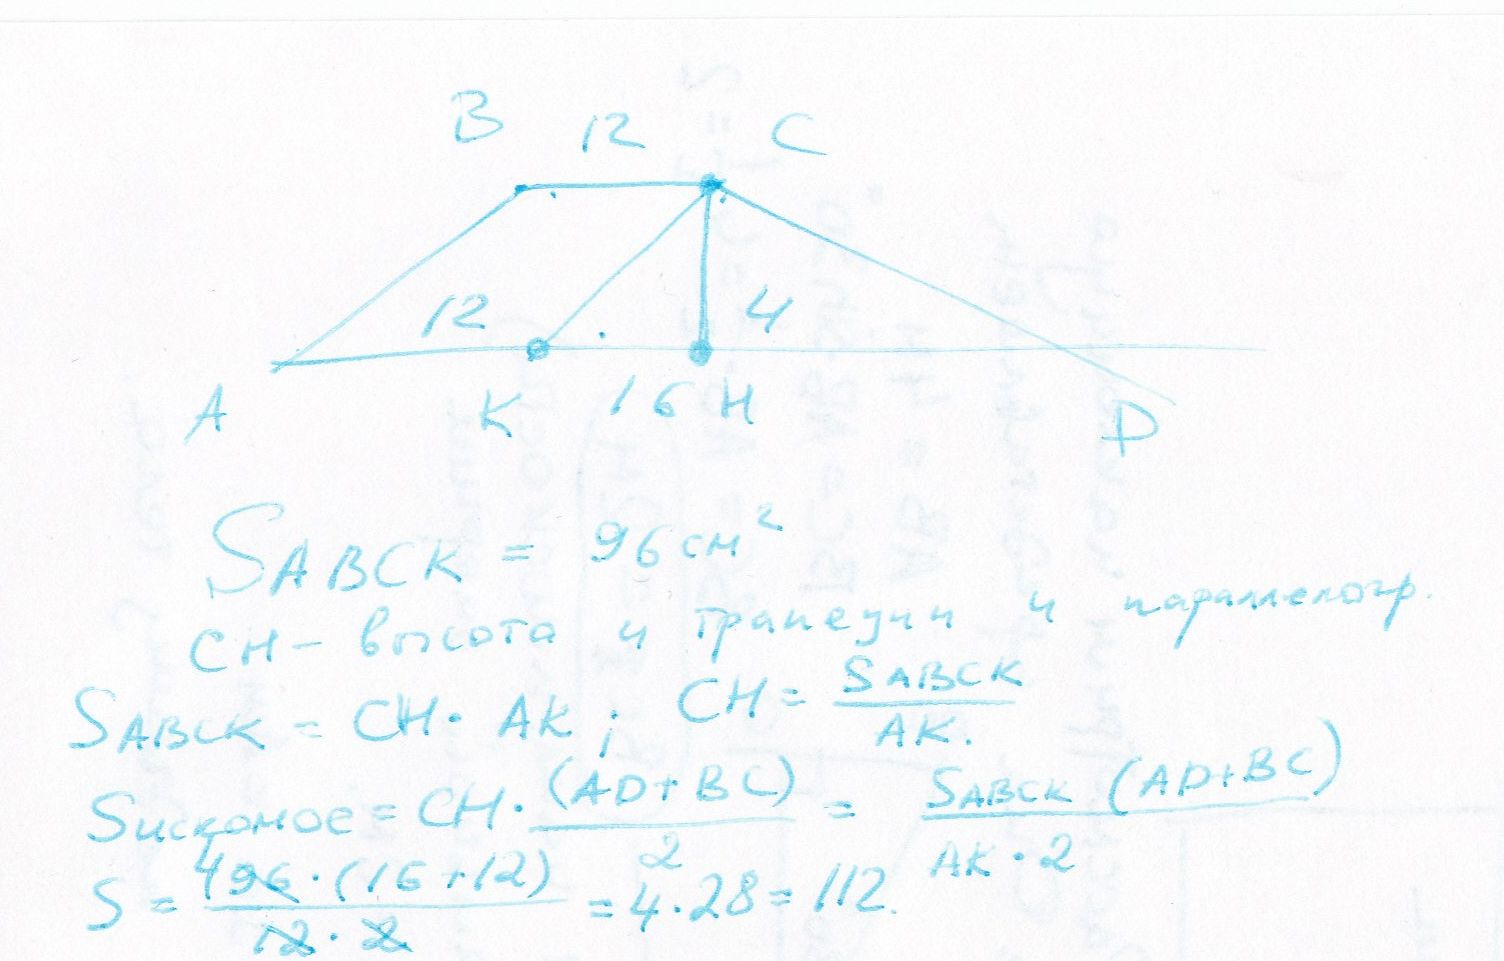 B 12 C
12 4
A K 16 H D
SABCK = 96 см²
CH – высота и трапеции и параллелогр.
SABCK = CH · AK; CH = SABCK / AK.
Sискомое = CH · (AD+BC) / 2 = SABCK (AD+BC) / AK · 2
S = 496 · (16+12) / 12 · 2 = 4 · 28 = 112.